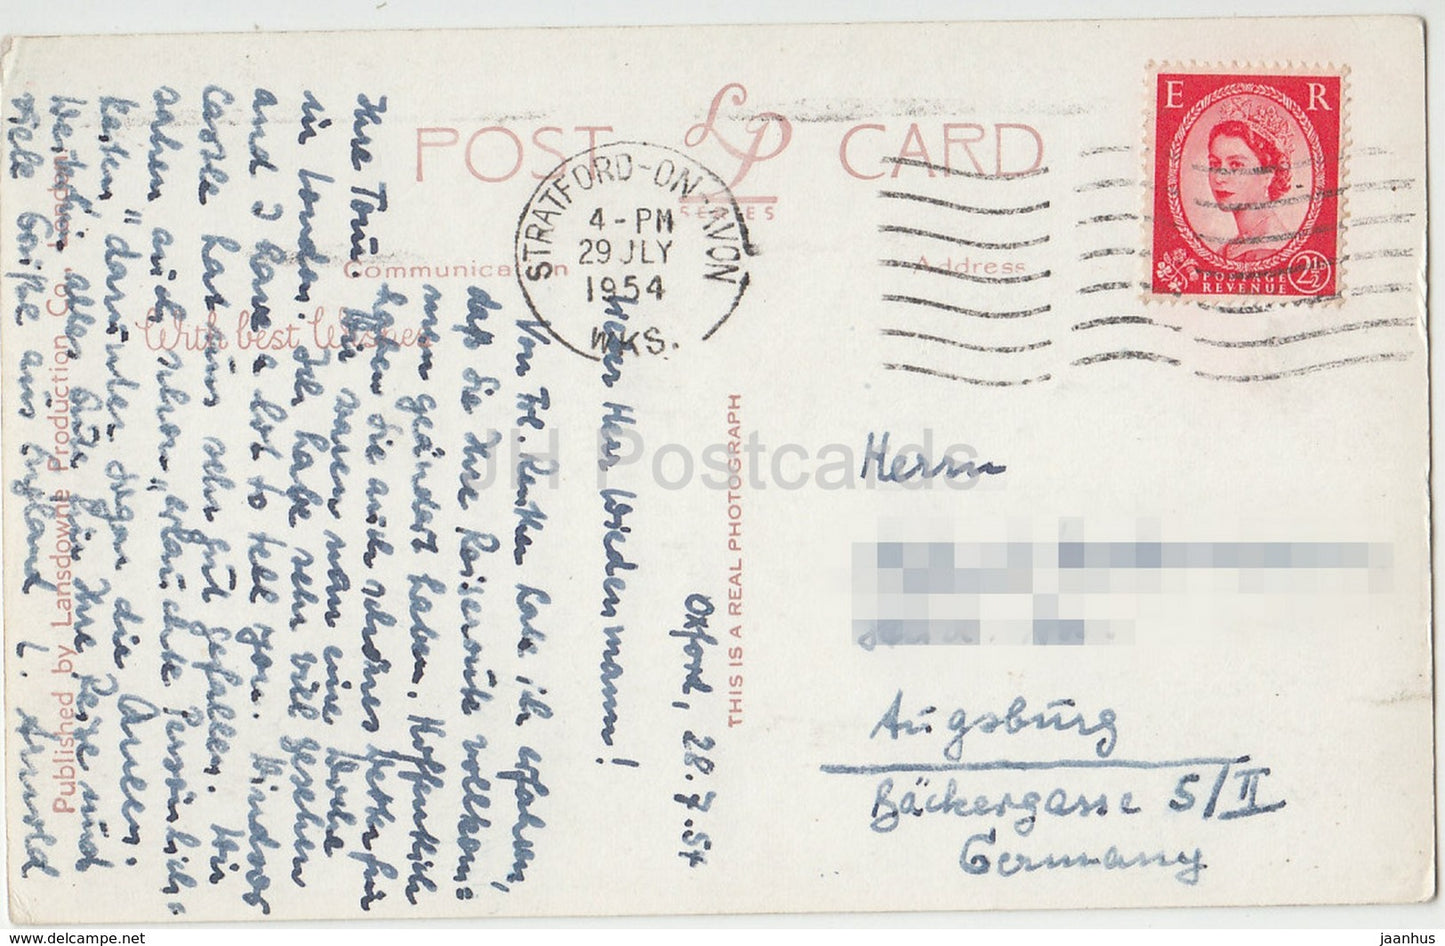 POST CARD
LP
SERIES
Communication
Address
With best Wishes
STRATFORD-ON-AVON
4-PM
29 JLY
1954
WKS.
E R
POSTAGE
REVENUE
2½D
THIS IS A REAL PHOTOGRAPH
Published by Lansdowne Production Co., London
Oxford, 28.7.54
Herr Wiedenmann!
Von Frl. habe ich erfahren,
daß Sie Ihre Reiseroute vollkom=
men geändert haben. Hoffentlich
haben Sie auch schönes Wetter für
Ihre Tour. Wir waren nun eine Woche
in London. Ich habe sehr viel gesehen
and I have a lot to tell you. Windsor
Castle hat uns sehr gut gefallen. Wir
sahen auch schon „erlauchte Persönlich-
keiten" darunter sogar die Queen.
Weiterhin alles Gute für Ihre Reise und
viele Grüße aus England L. Arnold
Herrn
Augsburg
Bäckergasse 5/II
Germany
JH Postcards
hip-net.delcampe.net
jaanhus